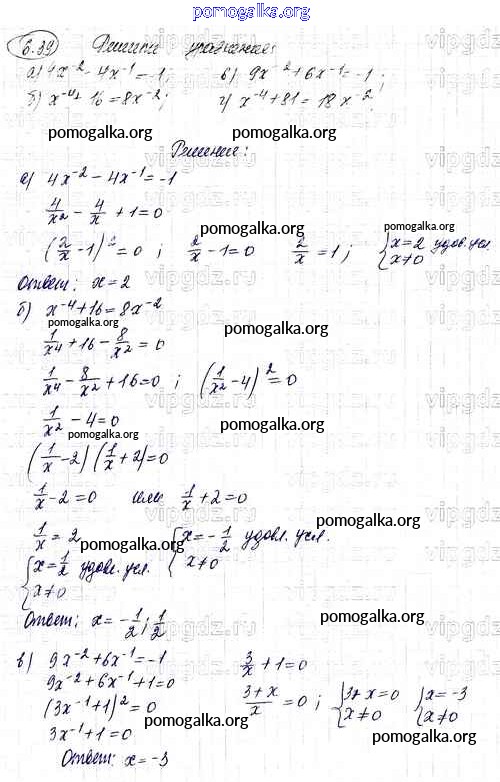 pomogalka.org
6.39 Решить уравнение:
а) 4x⁻² - 4x⁻¹ = -1; в) 9x⁻² + 6x⁻¹ = -1;
б) x⁻⁴ + 16 = 8x⁻²; г) x⁻⁴ + 81 = 18x⁻²;
pomogalka.org pomogalka.org
Решение:
а) 4x⁻² - 4x⁻¹ = -1
4/x² - 4/x + 1 = 0
pomogalka.org pomogalka.org
(2/x - 1)² = 0; 2/x - 1 = 0 2/x = 1; {x = 2 удов. усл. x ≠ 0
Ответ: x = 2
б) x⁻⁴ + 16 = 8x⁻²
pomogalka.org pomogalka.org
1/x⁴ + 16 - 8/x² = 0
1/x⁴ - 8/x² + 16 = 0; (1/x² - 4)² = 0
1/x² - 4 = 0
pomogalka.org pomogalka.org
(1/x - 2)(1/x + 2) = 0
1/x - 2 = 0 или 1/x + 2 = 0
pomogalka.org
1/x = 2 {x = -1/2 удовл. усл. x ≠ 0
pomogalka.org
{x = 1/2 удовл. усл. x ≠ 0
Ответ: x = -1/2; 1/2
pomogalka.org
в) 9x⁻² + 6x⁻¹ = -1 3/x + 1 = 0
9x⁻² + 6x⁻¹ + 1 = 0
(3x⁻¹ + 1)² = 0 3+x/x = 0; {3 + x = 0 x ≠ 0 {x = -3 x ≠ 0
pomogalka.org
3x⁻¹ + 1 = 0
pomogalka.org
Ответ: x = -3
vipgdz.ru